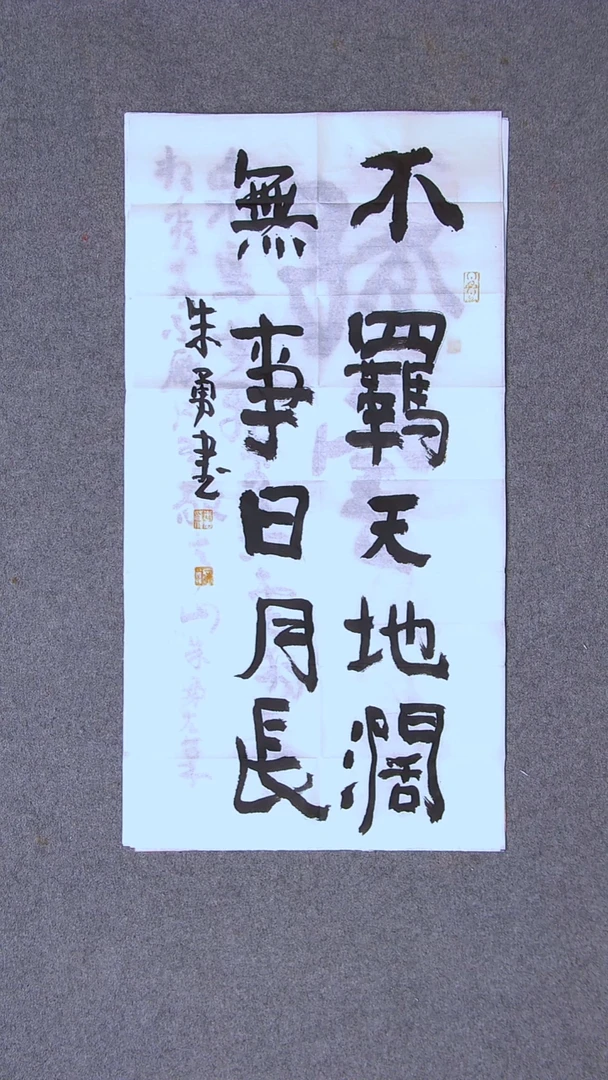 不羈天地闊
無事日月長
朱勇書